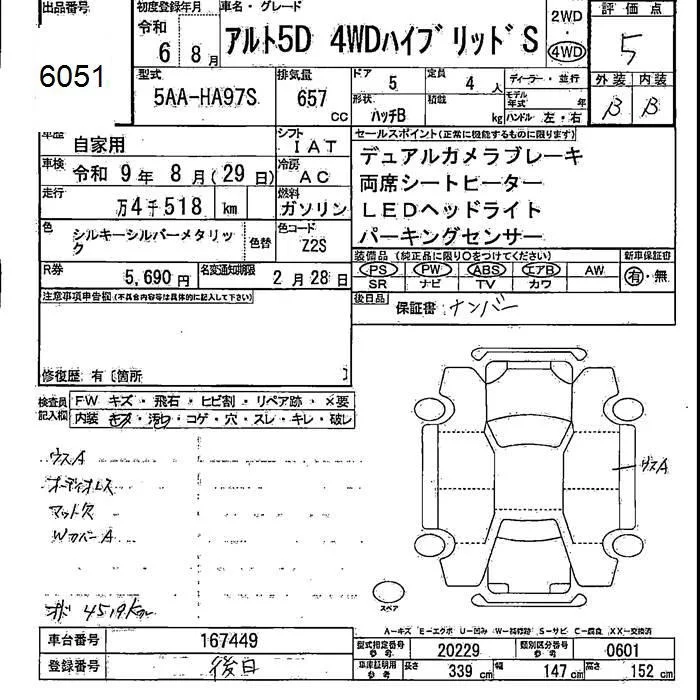 出品番号
6051
初度登録年月
令和
6 8月
車名・グレード
アルト5D 4WDハイブリッド S
2WD
・
4WD
評価点
5
型式
5AA-HA97S
排気量
657
CC
ドア
5
定員
4 人
ディーラー・並行
外装 内装
B B
形状
ハッチB
積載
kg
モデル年式 年
ハンドル 左・右
車歴
自家用
シフト
IAT
車検
令和 9 年 8 月 (29 日)
冷房
AC
走行
万4千518 km
燃料
ガソリン
色
シルキーシルバーメタリック
色替
色コード
Z2S
R券
5,690 円
名変通知期限
2 月 28 日
セールスポイント(正常に機能するものに限ります)
デュアルカメラブレーキ
両席シートヒーター
LEDヘッドライト
パーキングセンサー
装備品 (純正品に限り○をつけてください)
新車保証書
PS PW ABS エアB AW
有・無
SR ナビ TV カワ
後日品
保証書 ナンバー
注意事項申告欄(不具合内容等は具体的に記入して下さい)
修復歴 有〔箇所 〕
検査員
記入欄
FW キズ・飛石・ヒビ割・リペア跡・×要
内装 キズ・汚れ・コゲ・穴・スレ・キレ・破レ
ウスA
オーディオレス
マット欠
WカバーA
オド 4519km
ウスA
スペア
A−キズ E−エクボ U−凹み W−補修跡 S−サビ C−腐食 XX−交換済
車台番号
167449
登録番号
後日
型式指定番号
参考
20229
類別区分番号
参考
0601
車庫証明用
参考
長さ
339 cm
幅
147 cm
高さ
152 cm